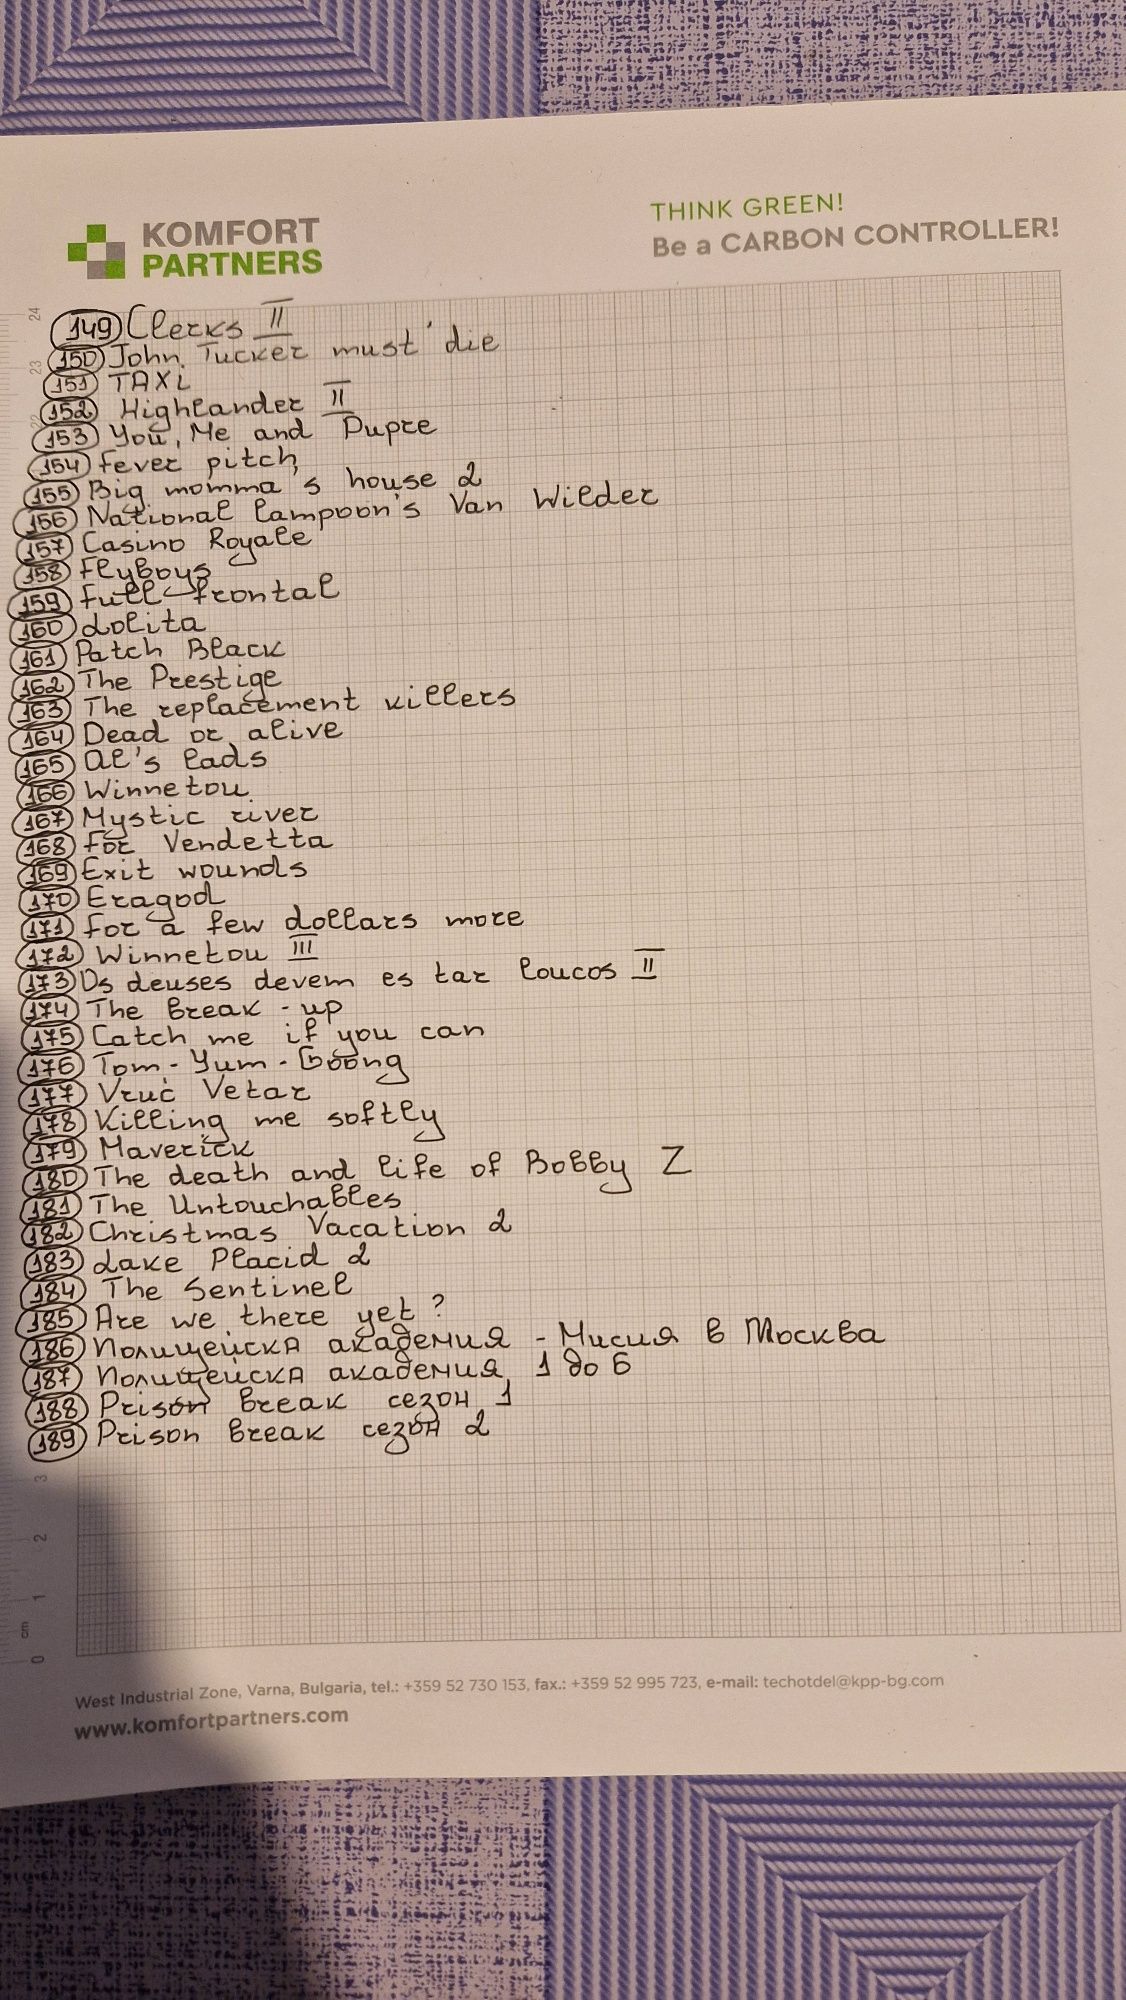 KOMFORT
PARTNERS
THINK GREEN!
Be a CARBON CONTROLLER!
149 Clerks II
150 John Tucker must die
151 TAXi
152 Highlander II
153 You, Me and Dupre
154 fever pitch
155 Big momma's house 2
156 National lampoon's Van Wilder
157 Casino Royale
158 Flyboys
159 full-frontal
160 Lolita
161 Patch Black
162 The Prestige
163 The replacement killers
164 Dead or alive
165 Al's lads
166 Winnetou
167 Mystic river
168 for Vendetta
169 Exit wounds
170 Eragod
171 for a few dollars more
172 Winnetou III
173 Os deuses devem es tar loucos II
174 The break-up
175 Catch me if you can
176 Tom-Yum-Goong
177 Vruć Vetar
178 Killing me softly
179 Maverick
180 The death and life of Bobby Z
181 The Untouchables
182 Christmas Vacation 2
183 Lake Placid 2
184 The Sentinel
185 Are we there yet?
186 Полицейска академия - Мисия в Москва
187 Полицейска академия 1 до 6
188 Prison break сезон 1
189 Prison break сезон 2
24
23
22
3
2
1
cm
0
West Industrial Zone, Varna, Bulgaria, tel.: +359 52 730 153, fax.: +359 52 995 723, e-mail: techotdel@kpp-bg.com
www.komfortpartners.com